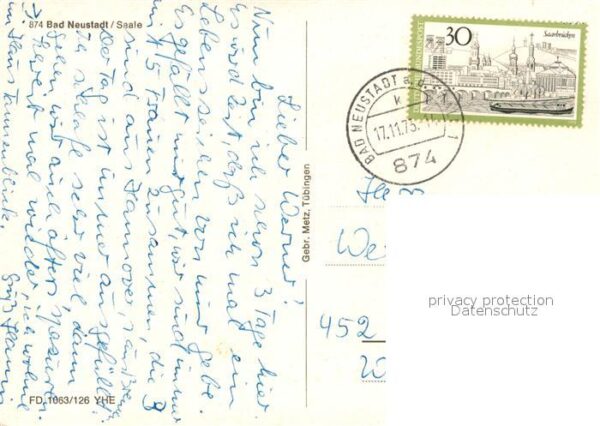 874 Bad Neustadt / Saale
Lieber Werner!
Nun bin ich schon 3 Tage hier.
Es wird Zeit, daß ich mal ein
Lebenszeichen von mir gebe.
Es gefällt mir gut, wir sind immer
5 Frauen zusammen, die 3
sind aus Hannover,
Der Tag ist immer ausgefüllt.
Ja schlafe sehr viel, dann
wir auch öfters spazieren.
mal wieder. Ich wohne
im Haus Tannenblick.
Gruß Hanni
FD 1063/126 YHE
Gebr. Metz, Tübingen
30
Saarbrücken
DEUTSCHE BUNDESPOST
BAD NEUSTADT a.d.S.
k
17.11.73
1
874
452
privacy protection
Datenschutz